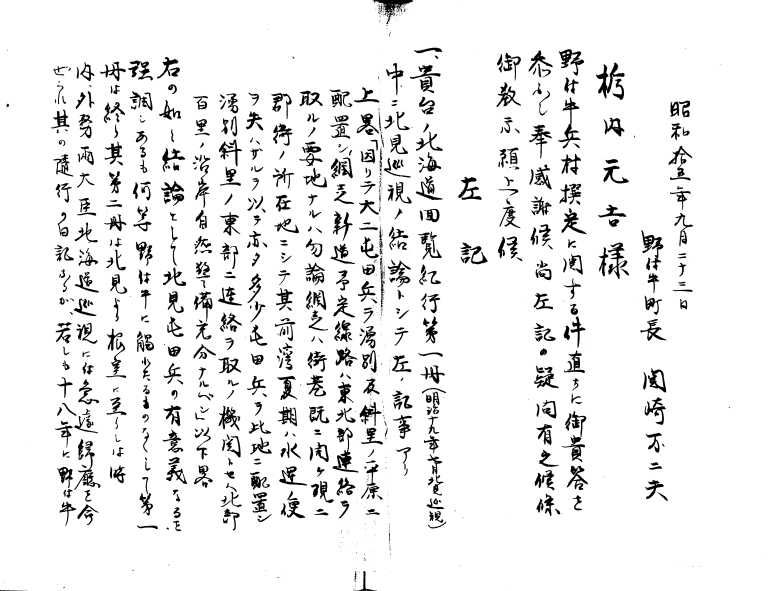 昭和拾五年九月二十三日
野付牛町長　関崎不二夫
栃内元吉様
野付牛兵村撰定に関する件直ちに御貴答を
忝ふし奉感謝候尚左記の疑問有之候條
御教示願上度候
左記
一、貴台ノ北海道回覧紀行第一冊（明治十九年七月北見巡視）
中ニ北見巡視ノ結論トシテ左ノ記事アリ
上畧「因リテ大ニ屯田兵ヲ湧別及斜里ノ平原ニ
配置シ網走新道予定線路ハ東北部連絡ヲ
取ルノ要地ナルハ勿論網走ハ街巷既ニ開ケ現ニ
郡衙ノ所在地ニシテ其前湾夏期ハ水運ノ便
ヲ失ハザルヲ以テ亦タ多少屯田兵ヲ此地ニ配置シ
湧別斜里ノ東部ニ連絡ヲ取ルノ機関トセハ北部
百里ノ沿岸自然警備充分ナルベシ」以下畧
右の如く結論として北見屯田兵の有意義なるを
強調しあるも何等野付牛に觸れたるものなくして第一
冊は終り其第二冊は北見より根室に至りし時
内、外務両大臣北海道巡視に付急遽歸廳を命
ぜられ其の随行の日記なるが、若しも十八年に野付牛